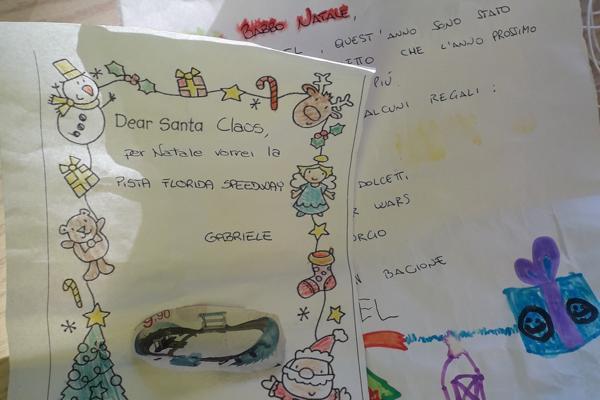 Dear Santa Claos,
per Natale vorrei la
PISTA FLORIDA SPEEDWAY
GABRIELE
9,90
BABBO NATALE,
EL, QUEST'ANNO SONO STATO
ETTO CHE L'ANNO PROSSIMO
PIÙ.
ALCUNI REGALI:
DOLCETTI
R WARS
ORGIO
N BACIONE
EL